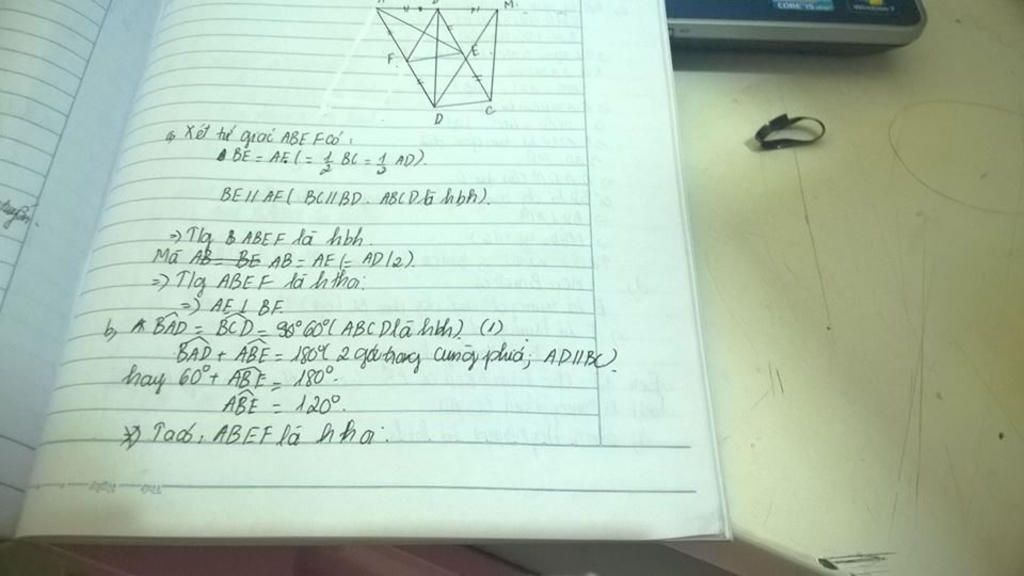 M
F
E
D
C
a, Xét tứ giác ABEF có:
BE = AF (= 1/2 BC = 1/2 AD).
BE // AF ( BC // BD. ABCD là hbh).
=> T/g ABEF là hbh.
Mà AB = BE AB = AF (= AD/2).
=> T/g ABEF là hthoi
=> AE ⊥ BF.
b, BAD = BCD = 90° 60° (ABCD là hbh) (1)
BAD + ABE = 180° ( 2 góc trong cùng phía; AD // BC)
hay 60° + ABE = 180°.
ABE = 120°.
Ta có: ABEF là hthoi
CORE i5
Windows 7